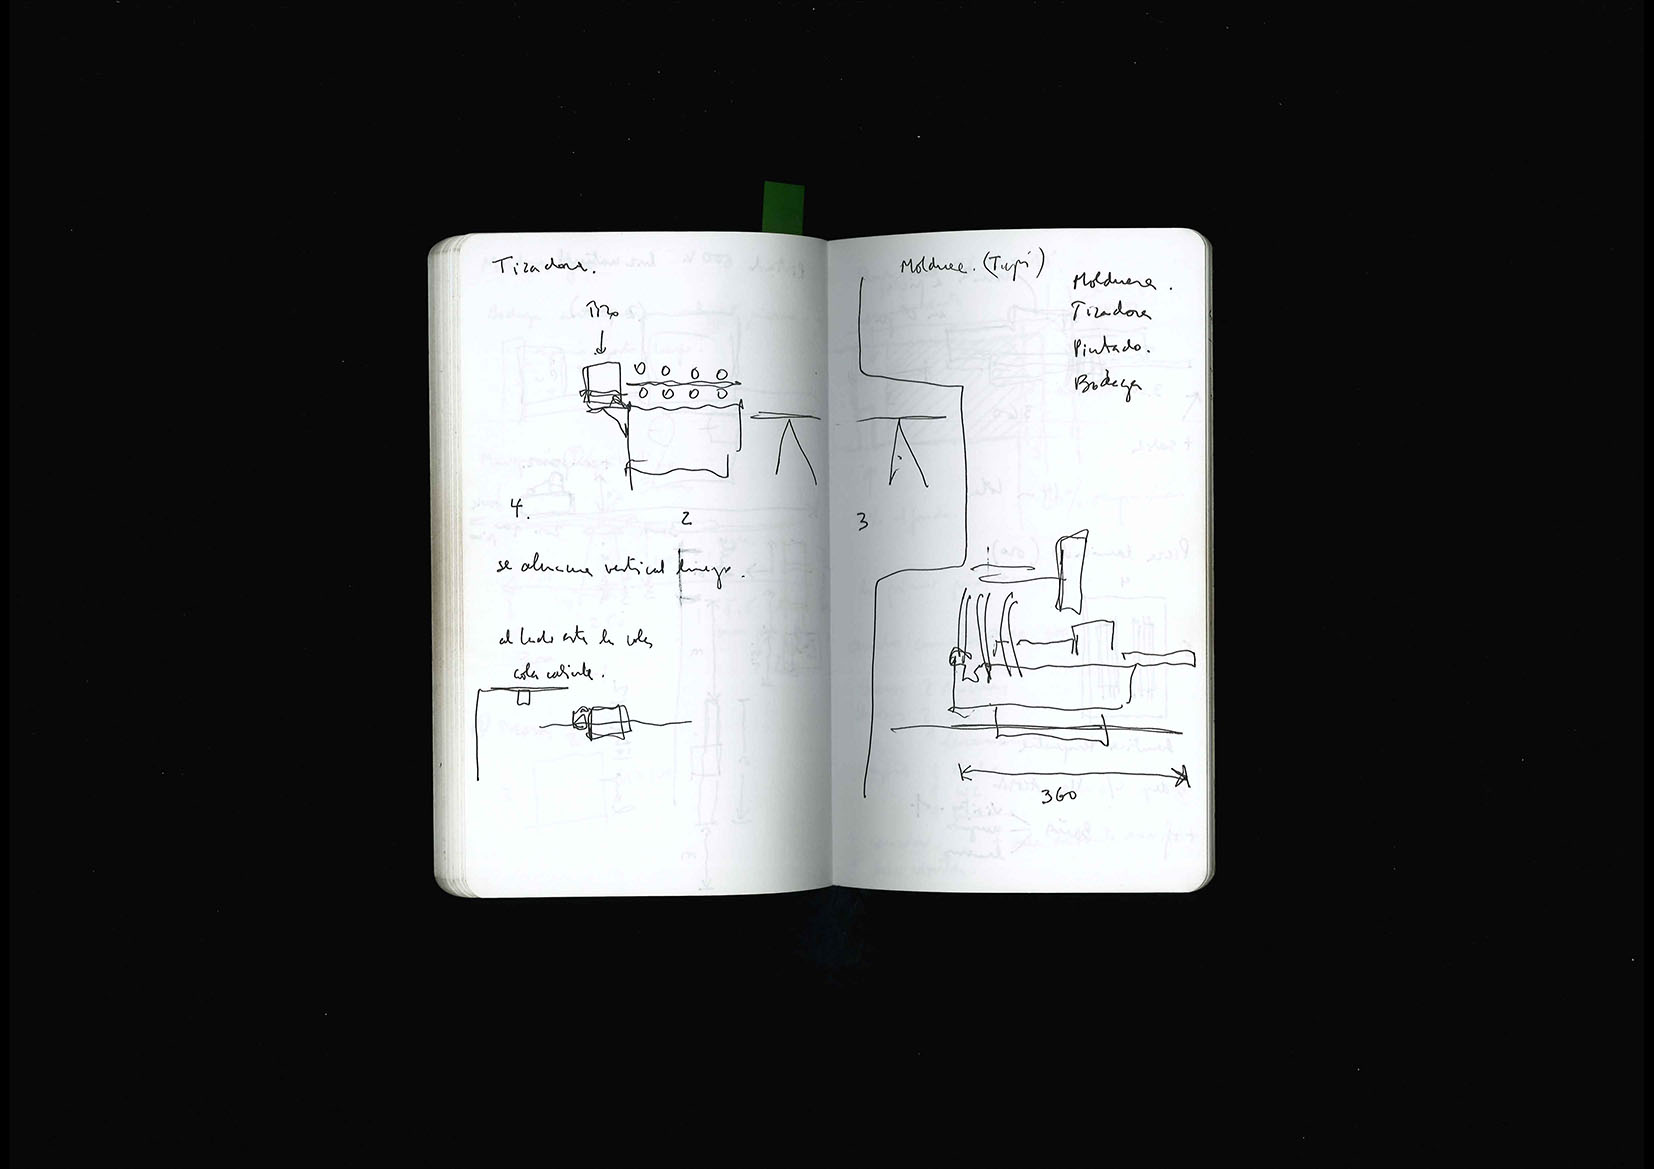 Tizadora.
Tizo
4.
2
se almacena vertical luego.
al lado esta la
cola caliente.
Moldurera. (Tupí)
Moldurera.
Tizadora
Pintado.
Bodega
3
360